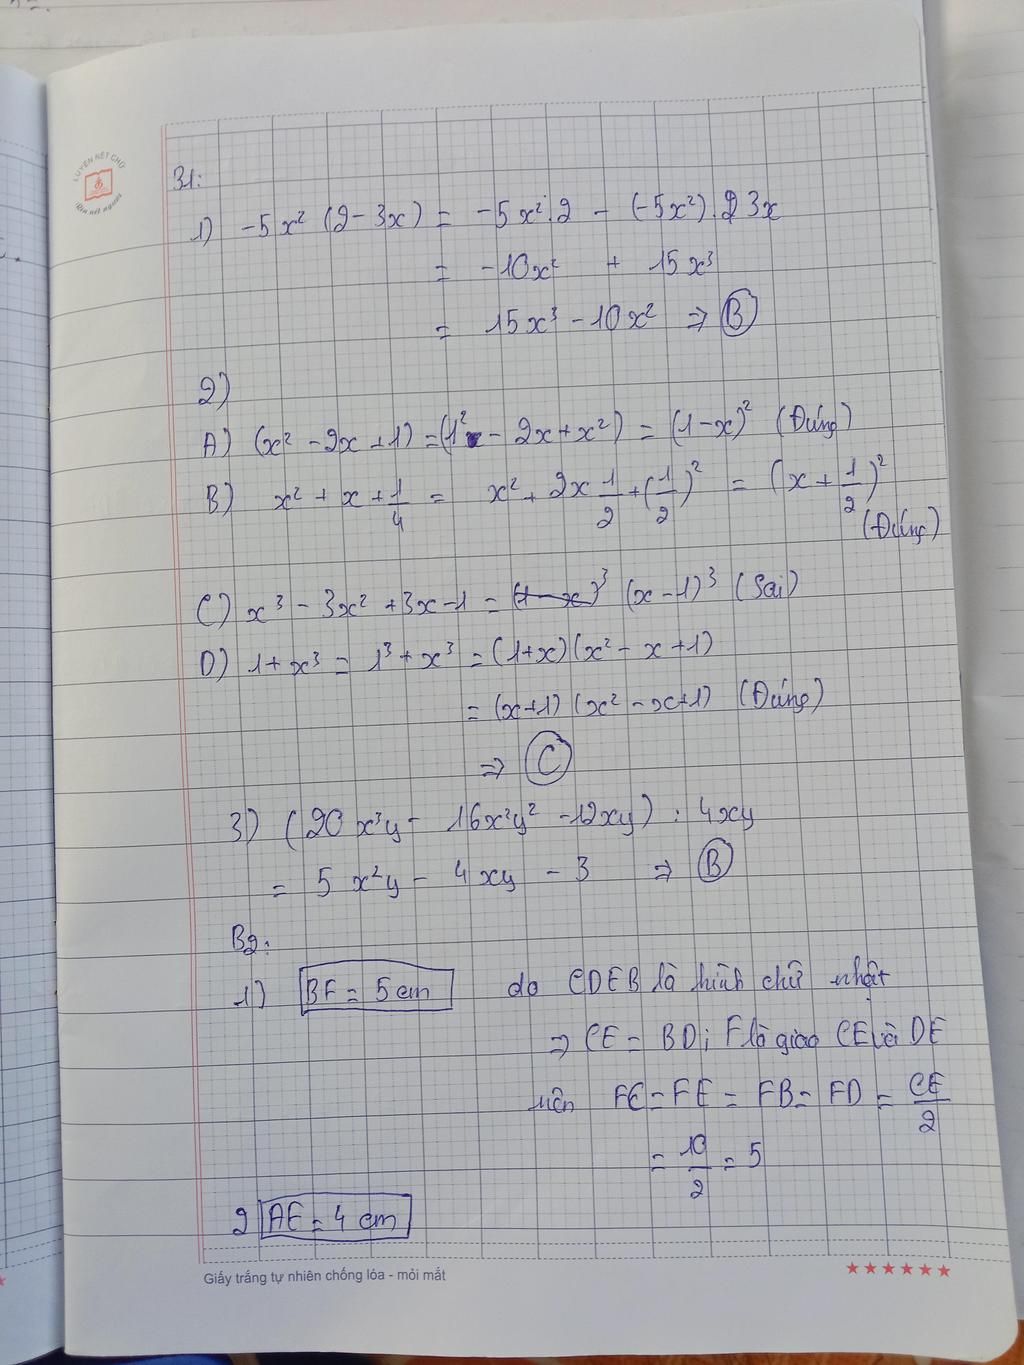 LUYỆN NÉT CHỮ
Rèn nết người
B1:
1) -5x² (2-3x) = -5x².2 - (-5x²).2 3x
= -10x² + 15x³
= 15x³ - 10x² ⇒ B
2)
A) (x² - 2x + 1) = (1² - 2x + x²) = (1-x)² (Đúng)
B) x² + x + 1/4 = x² + 2x 1/2 + (1/2)² = (x + 1/2)²
(Đúng)
C) x³ - 3x² + 3x - 1 = (1-x)³ (x-1)³ (Sai)
D) 1 + x³ = 1³ + x³ = (1+x)(x² - x + 1)
= (x+1)(x² - x + 1) (Đúng)
⇒ C
3) (20x³y - 16x²y² - 12xy) : 4xy
= 5x²y - 4xy - 3 ⇒ B
B2:
1) BF = 5 cm do CDEB là hình chữ nhật
⇒ CE = BD; F là giao CE và DE
nên FC = FE = FB = FD = CE/2
= 10/2 = 5
2 AE = 4 cm
Giấy trắng tự nhiên chống lóa - mỏi mắt